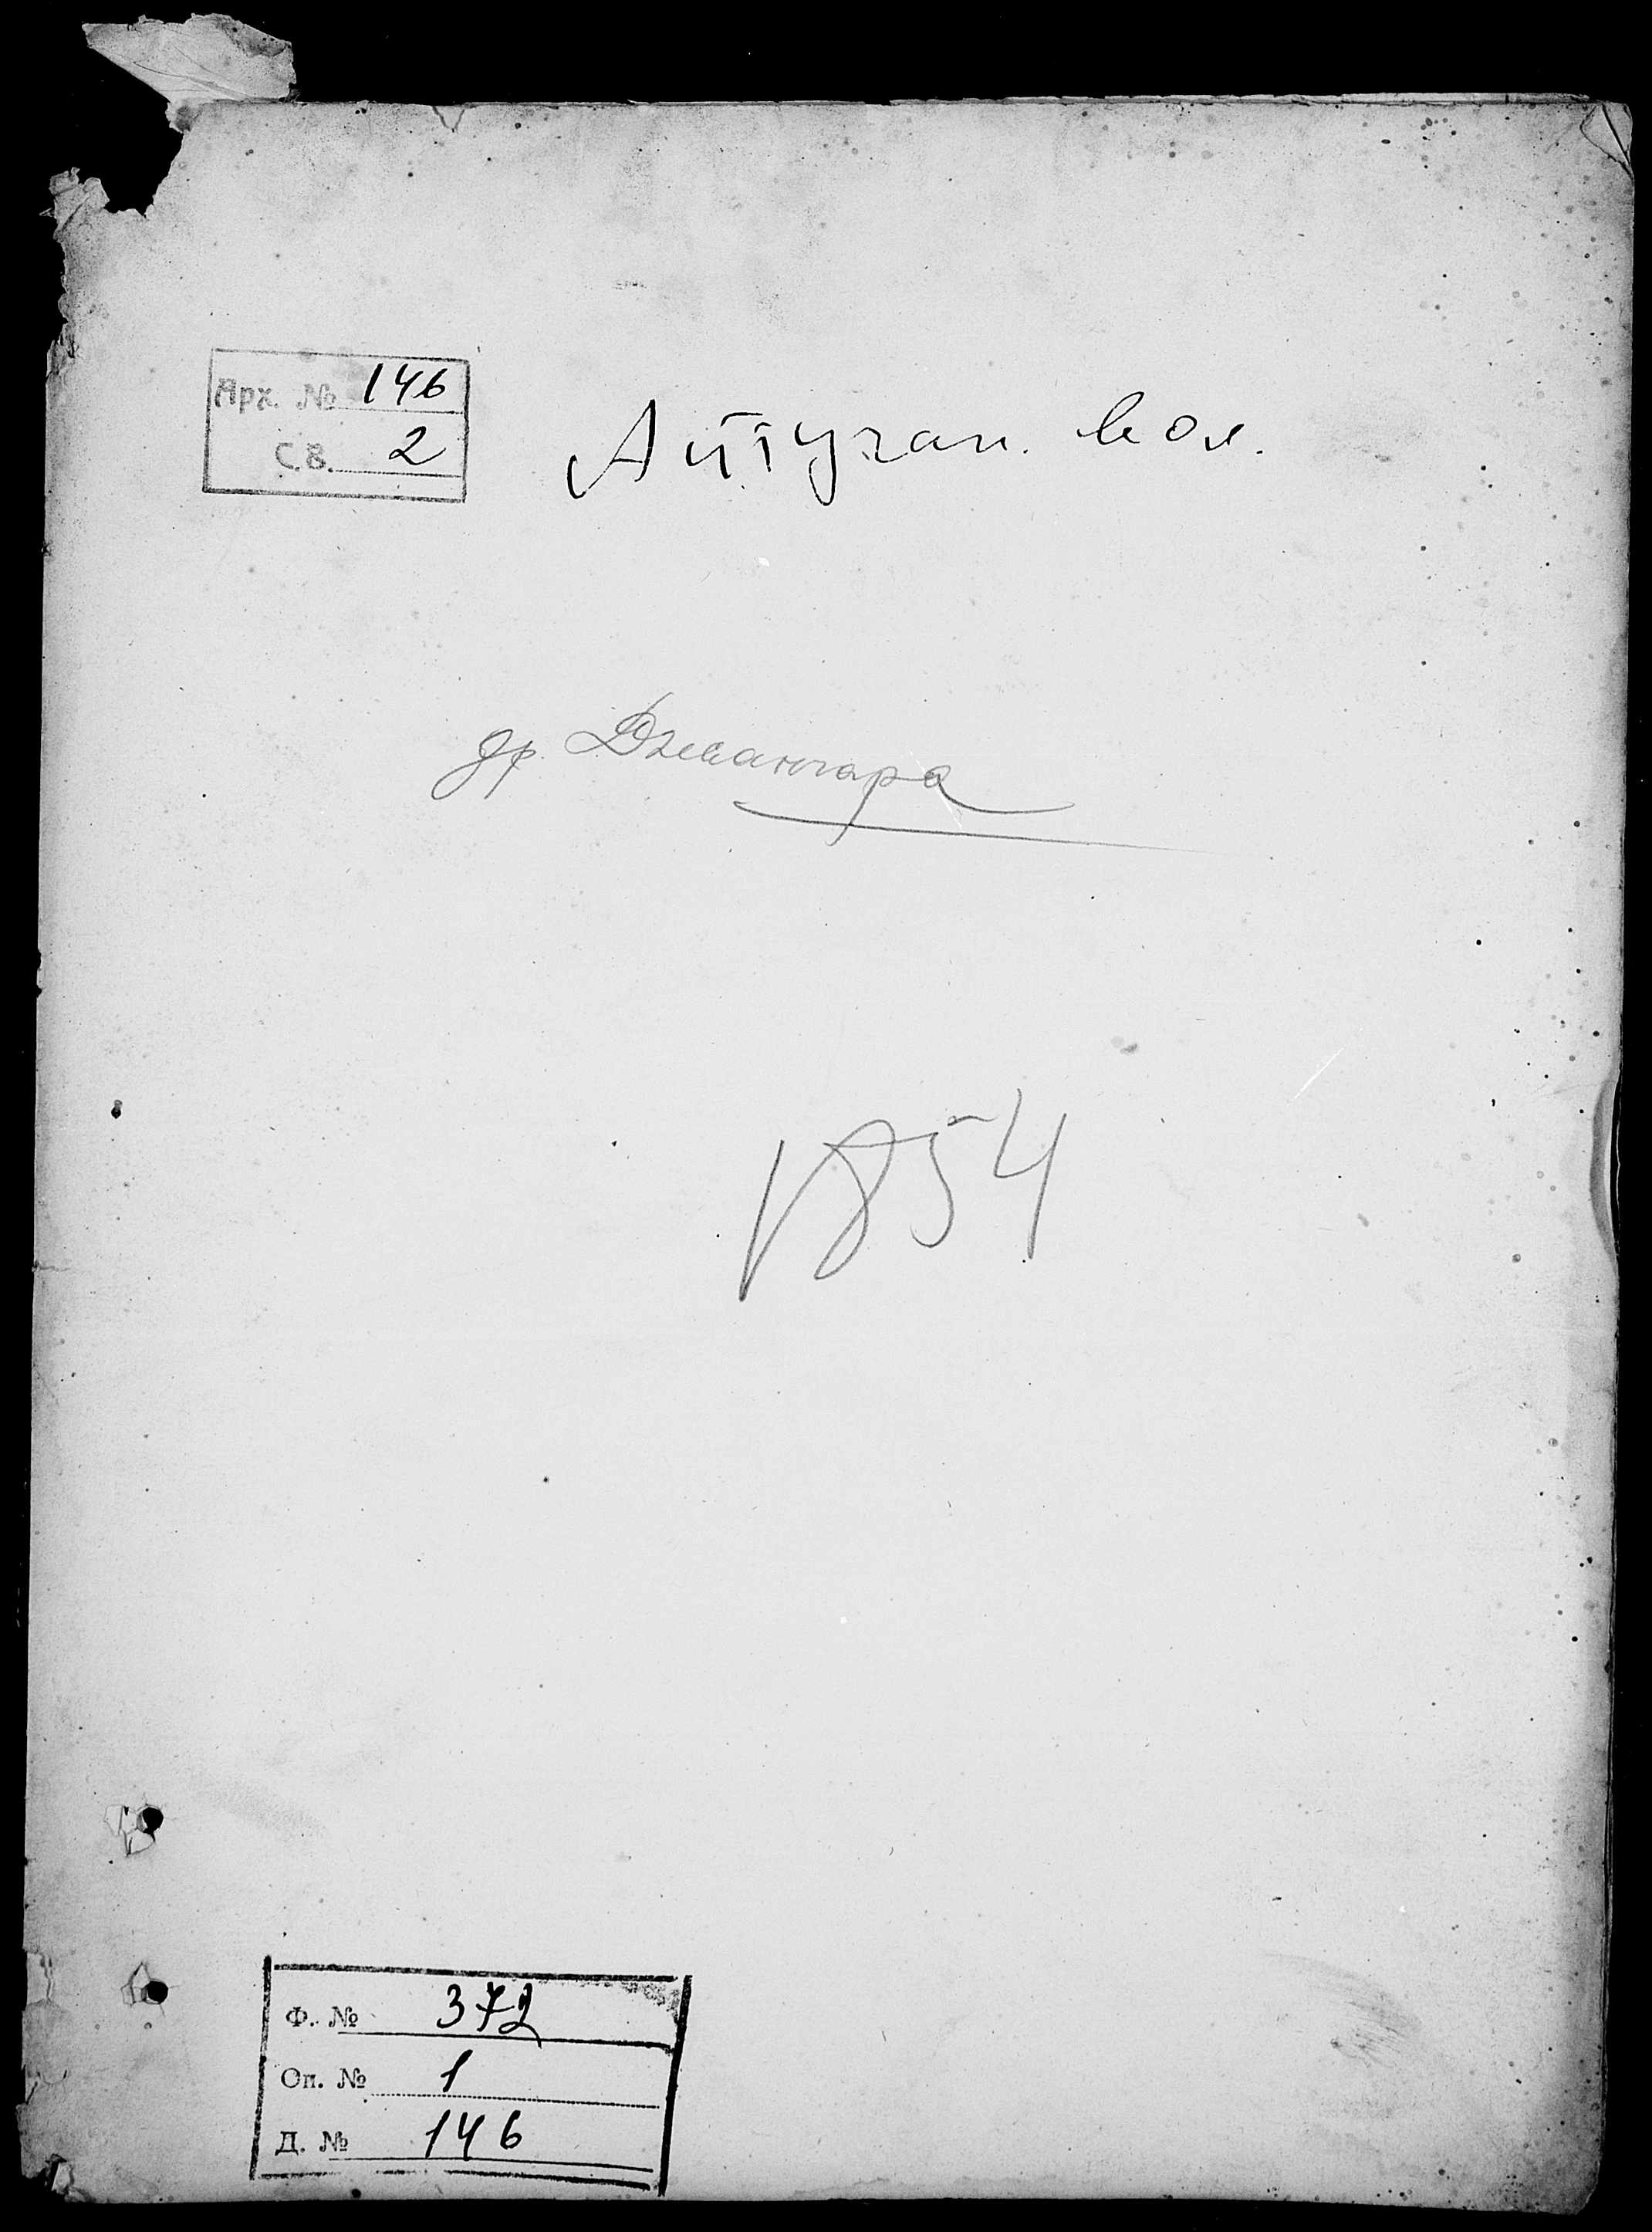 Арх. № 146
Св. 2
Айтуган. вол.
др. Джангара
1854
Ф. № 372
Оп. № 1
Д. № 146